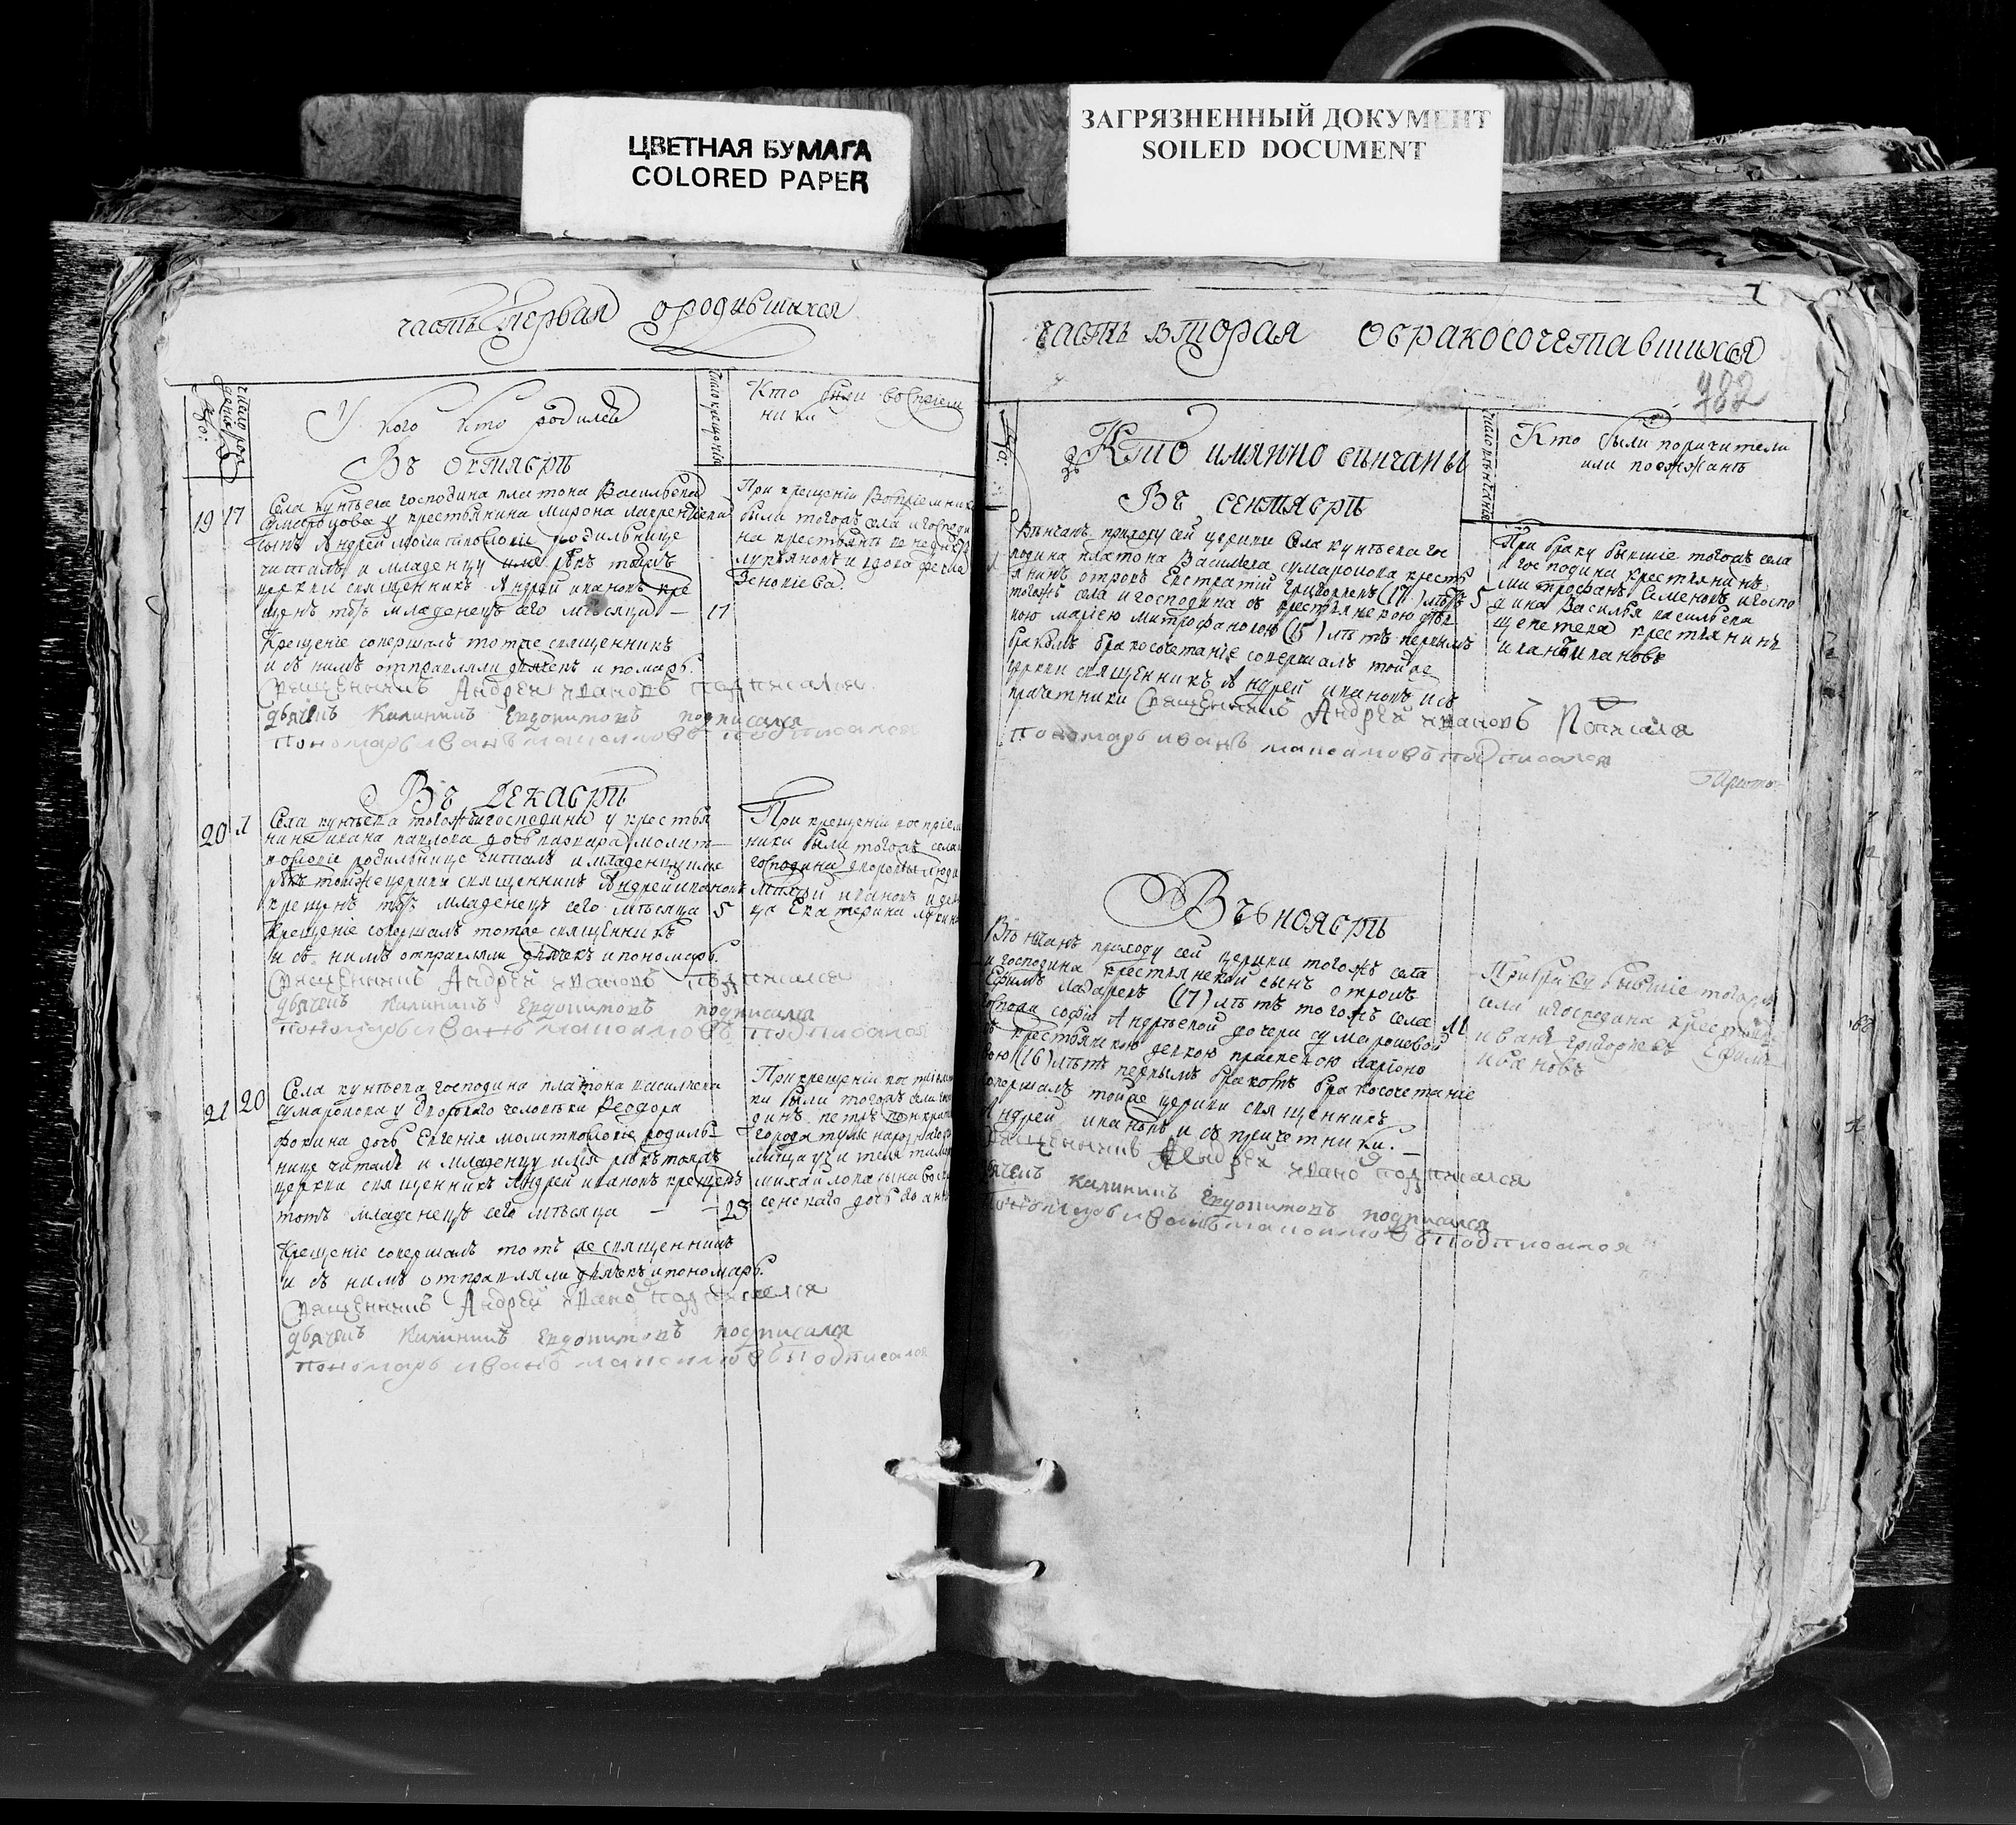 ЦВЕТНАЯ БУМАГА
COLORED PAPER
ЗАГРЯЗНЕННЫЙ ДОКУМЕНТ
SOILED DOCUMENT
часть первая о родившихся
У кого кто родился
Кто были восприем
ники
Въ октябрѣ
19 17
Села кунѣева господина платона Васильева
Сумарокова у крестьянина Мирона лаврентіева
сынъ Андрей молитвословіе родильнице
читалъ и младенцу имя рѣкъ тояжъ
церкви священникъ Андрей ивановъ кре
щенъ тотъ младенецъ сего мѣсяца — 17
Крещеніе совершалъ тотже священникъ
и съ нимъ отправляли дьячекъ и помарь.
Священникъ Андрей ивановъ подписался
дьячекъ Калиникъ Евдокимовъ подписался
пономарь иванъ максимовъ подписался
При крещеніи Воспріемник
были тогожъ села и господи
на крестьяне
и вдова
Въ декабрѣ
20 1
Села кунѣева тогожъ господина у крестья
нина ивана павлова дочь варвара молит
вословіе родильнице читалъ и младенцу имя
рѣкъ тойже церкви священникъ Андрей ивановъ
крещенъ тотъ младенецъ сего мѣсяца 5
Крещеніе совершалъ тотже священникъ
и съ нимъ отправляли дьячекъ и пономарь.
Священникъ Андрей ивановъ подписался
дьячекъ Калиникъ Евдокимовъ подписался
пономарь иванъ максимовъ подписался
При крещеніи воспріем
ники были тогожъ села
господина дворовые люди
ивановъ и деви
ца Екатерина
21 20
Села кунѣева господина платона васильева
сумарокова у дворового человѣка Феодора
фокина дочь Евгенія молитвословіе родиль
нице читалъ и младенцу имя рѣкъ тояжъ
церкви священникъ Андрей ивановъ крещенъ
тотъ младенецъ сего мѣсяца — 25
Крещеніе совершалъ тотъ же священникъ
и съ нимъ отправляли дьячекъ и пономарь.
Священникъ Андрей ивано подписался
дьячекъ Калиникъ Евдокимовъ подписался
пономарь иванъ максимовъ подписался
При крещеніи воспріемни
ки были тогожъ села
города тулы народнаго
лища учителя
михайлова сына
сенскаго дочь
часть вторая о бракосочетавшихся
782
Кто имянно вѣнчаны
Кто были поручители
или поѣзжанѣ
Въ сентябрѣ
Вѣнчанъ приходу сей церкви села кунѣева гос
подина платона Васильева сумарокова кресть
янинъ отрокъ Евстратій григорьевъ (17) лѣтъ 5
тогожъ села и господина съ крестьянскою дѣв
кою марѣею митрофановою (15) лѣтъ первымъ
бракомъ бракосочетаніе совершалъ тойже
церкви священникъ Андрей ивановъ и съ
причетники Священникъ Андрей ивановъ Подписался
пономарь иванъ максимовъ подписался
При браку бывшіе тогожъ села
и господина крестьянинъ
митрофанъ Семеновъ и госпо
дина Василья васильева
крестьянинъ
Въ ноябрѣ
Вѣнчанъ приходу сей церкви тогожъ села
и господина крестьянской сынъ отрокъ
Ефимъ лазаревъ (17) лѣтъ тогожъ села
госпожи софіи Андрѣевой дочери сумароковой 11
съ крестьянскою девкою прасковею ларіоно
вою (16) лѣтъ первымъ бракомъ бракосочетаніе
совершалъ тойже церкви священникъ
Андрей ивановъ и съ причетники.
Священникъ Андрей ивано подписался
дьячекъ Калиникъ Евдокимовъ подписался
пономарь иванъ максимовъ подписался
При браку бывшіе тогожъ
села и господина крестьяне
иванъ григорьевъ Ефимъ
ивановъ